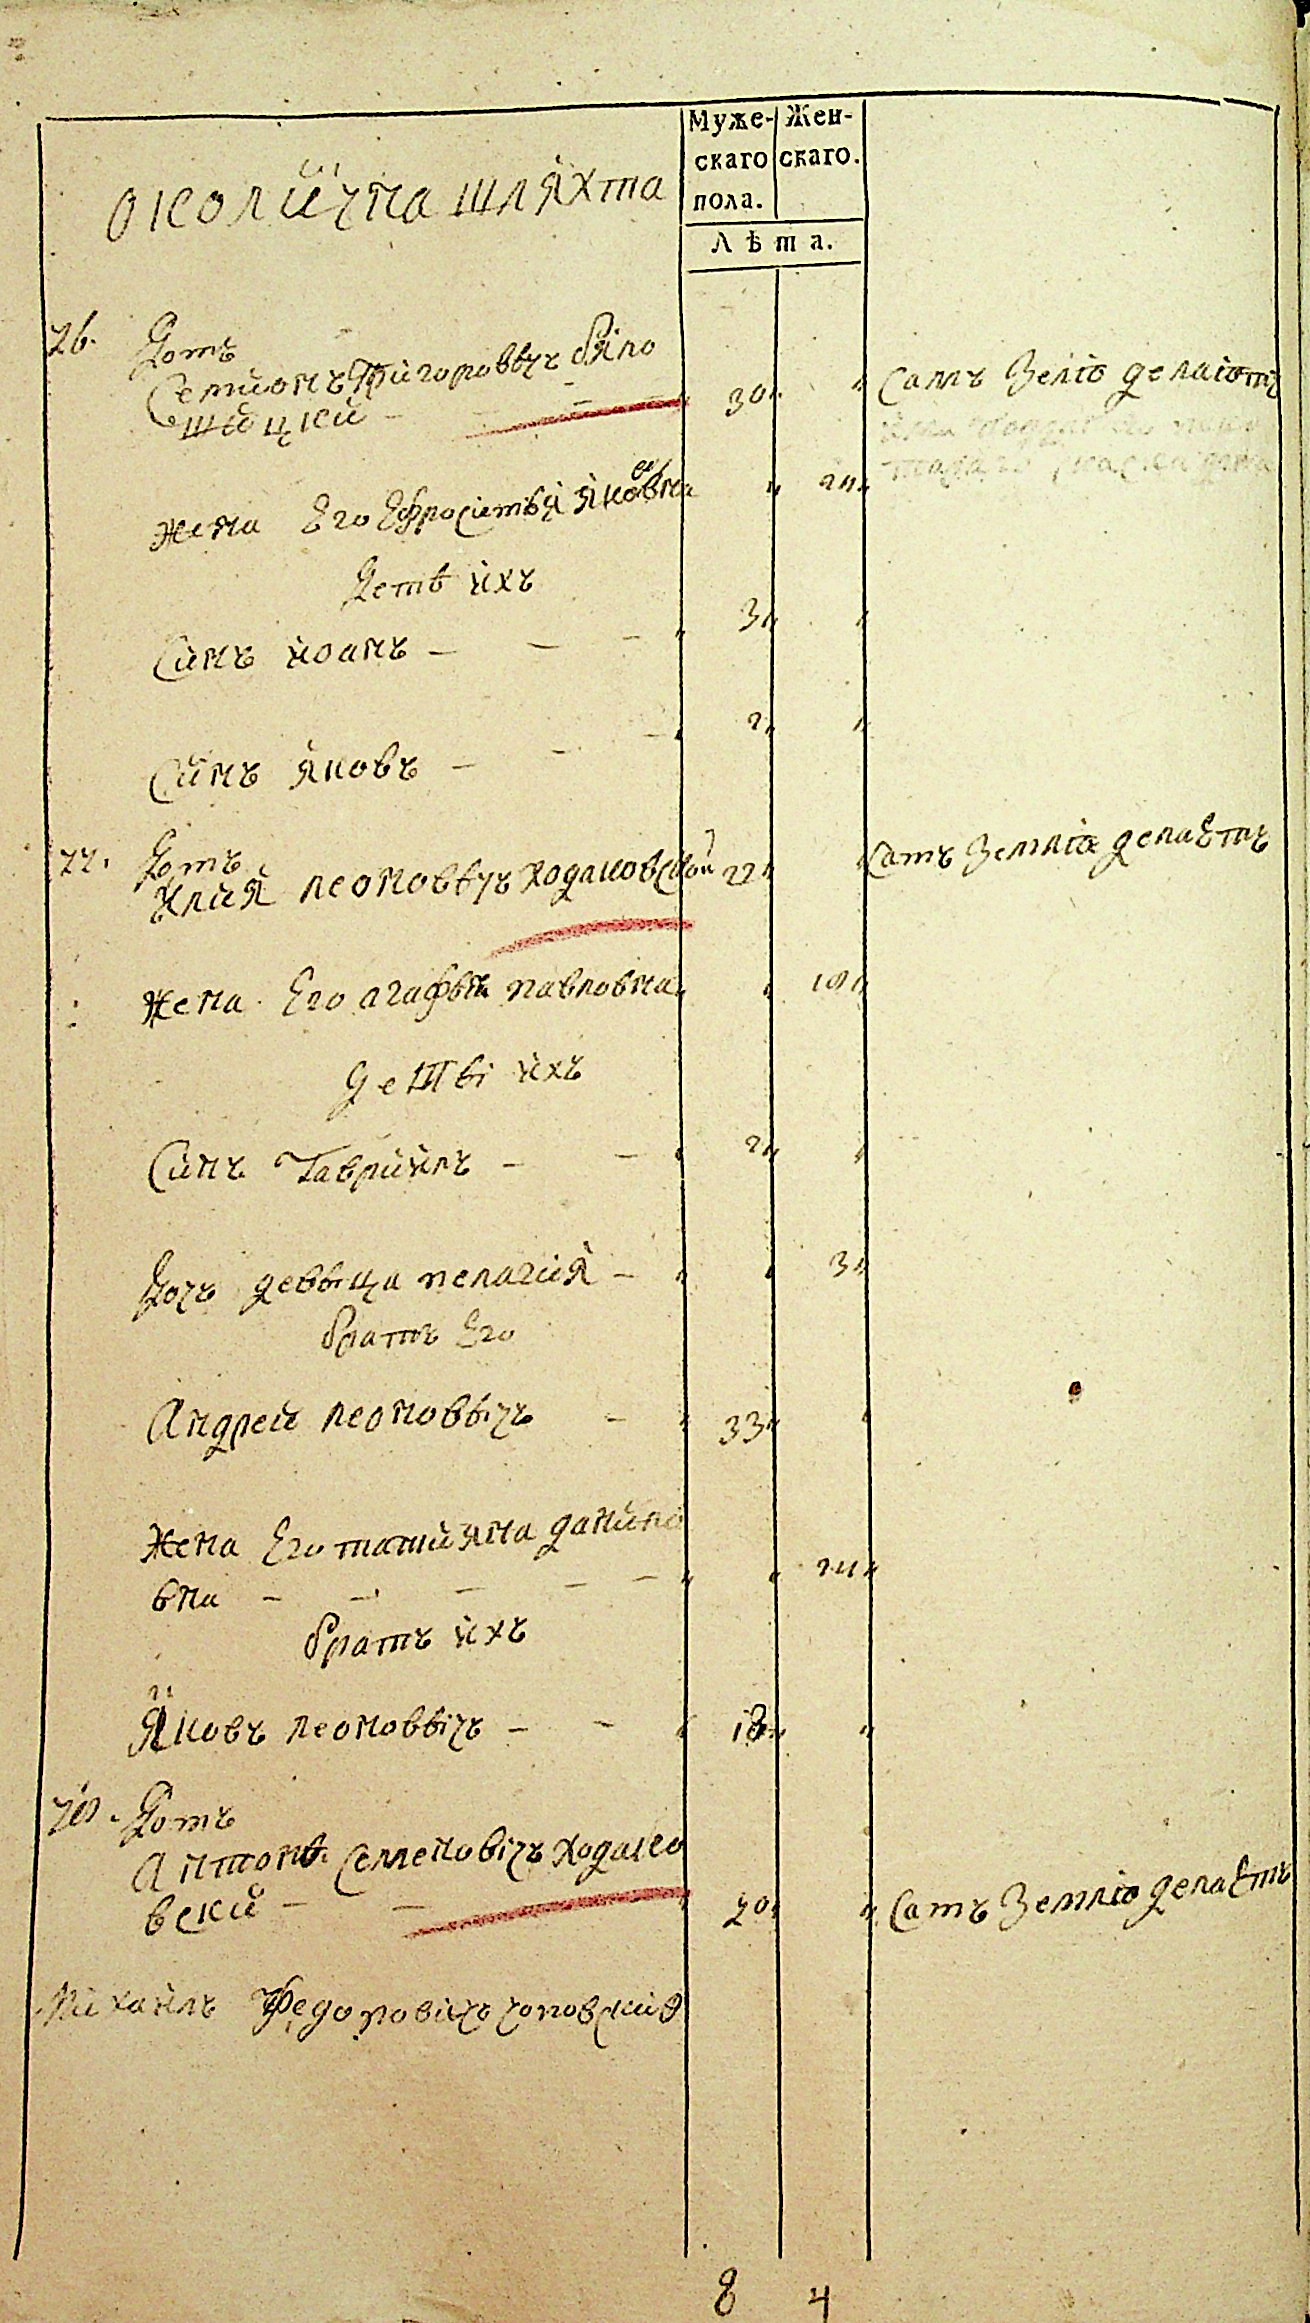 Муже- Жен-
скаго скаго.
пола.
Лѣта.
околична шляхта
26. Домъ
Семионъ Григоровъчъ бяло
шицкий 30 „ Самъ Зелю делаютъ
жена Его Ефросинья Яковна „ 24
Дети ихъ
Синъ иоанъ 3 „
Синъ яковъ 2 „
27. Домъ
Илия леоновичъ ходаковский 22 „ Самъ Землю делаетъ
жена Его агафья павловна „ 18
дети ихъ
Синъ Гавриилъ 2 „
Дочъ девыца пелагия „ 3
братъ Его
Андрей леоновычъ 33 „
жена Его татияна данило
вна „ 24
братъ ихъ
Яковъ леоновычъ 18 „
28. Домъ
Антонъ Семеновичъ ходако
вский 20 „ Самъ Землю делаетъ
Михаилъ Федоровичъ
8 4